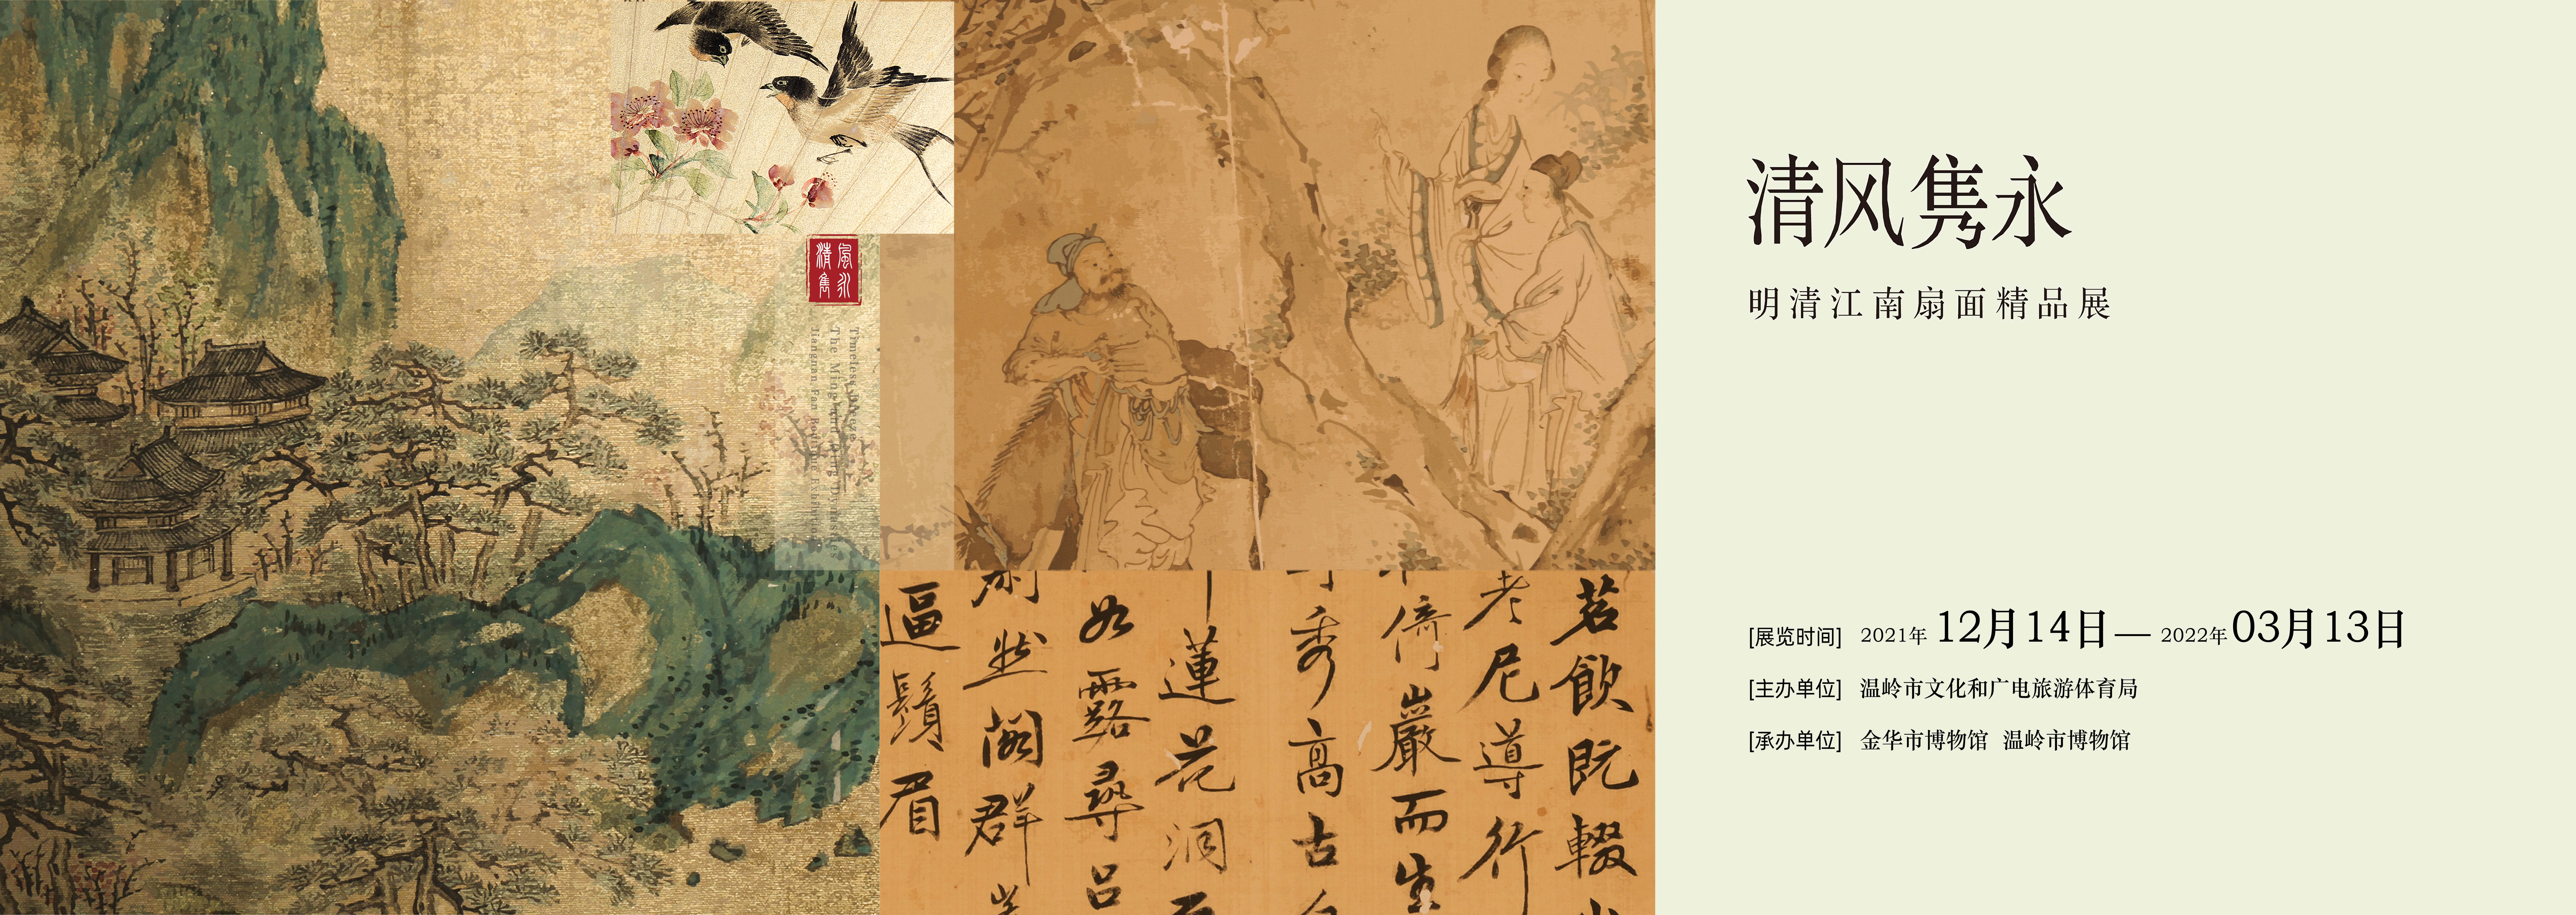 清风隽永
明清江南扇面精品展
[展览时间] 2021年 12月14日 — 2022年03月13日
[主办单位] 温岭市文化和广电旅游体育局
[承办单位] 金华市博物馆 温岭市博物馆
風永
清隽
Timeless
The Ming and Qing Dynasties
Jiangnan Fan Boutique Exhibition
茗飲既輟
老尼導行
倚巖而生
秀高古
蓮花洞
如露尋呂
然闊群
逼鬚眉